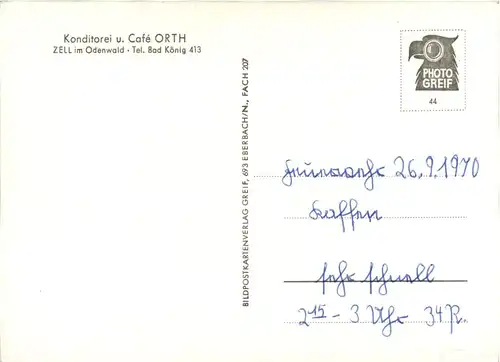 Konditorei u. Café ORTH
ZELL im Odenwald · Tel. Bad König 413
PHOTO
GREIF
44
BILDPOSTKARTENVERLAG GREIF, 693 EBERBACH/N., FACH 207
26.9.1970
Kaffee
sehr schnell
2 15 - 3 Uhr 34 P.